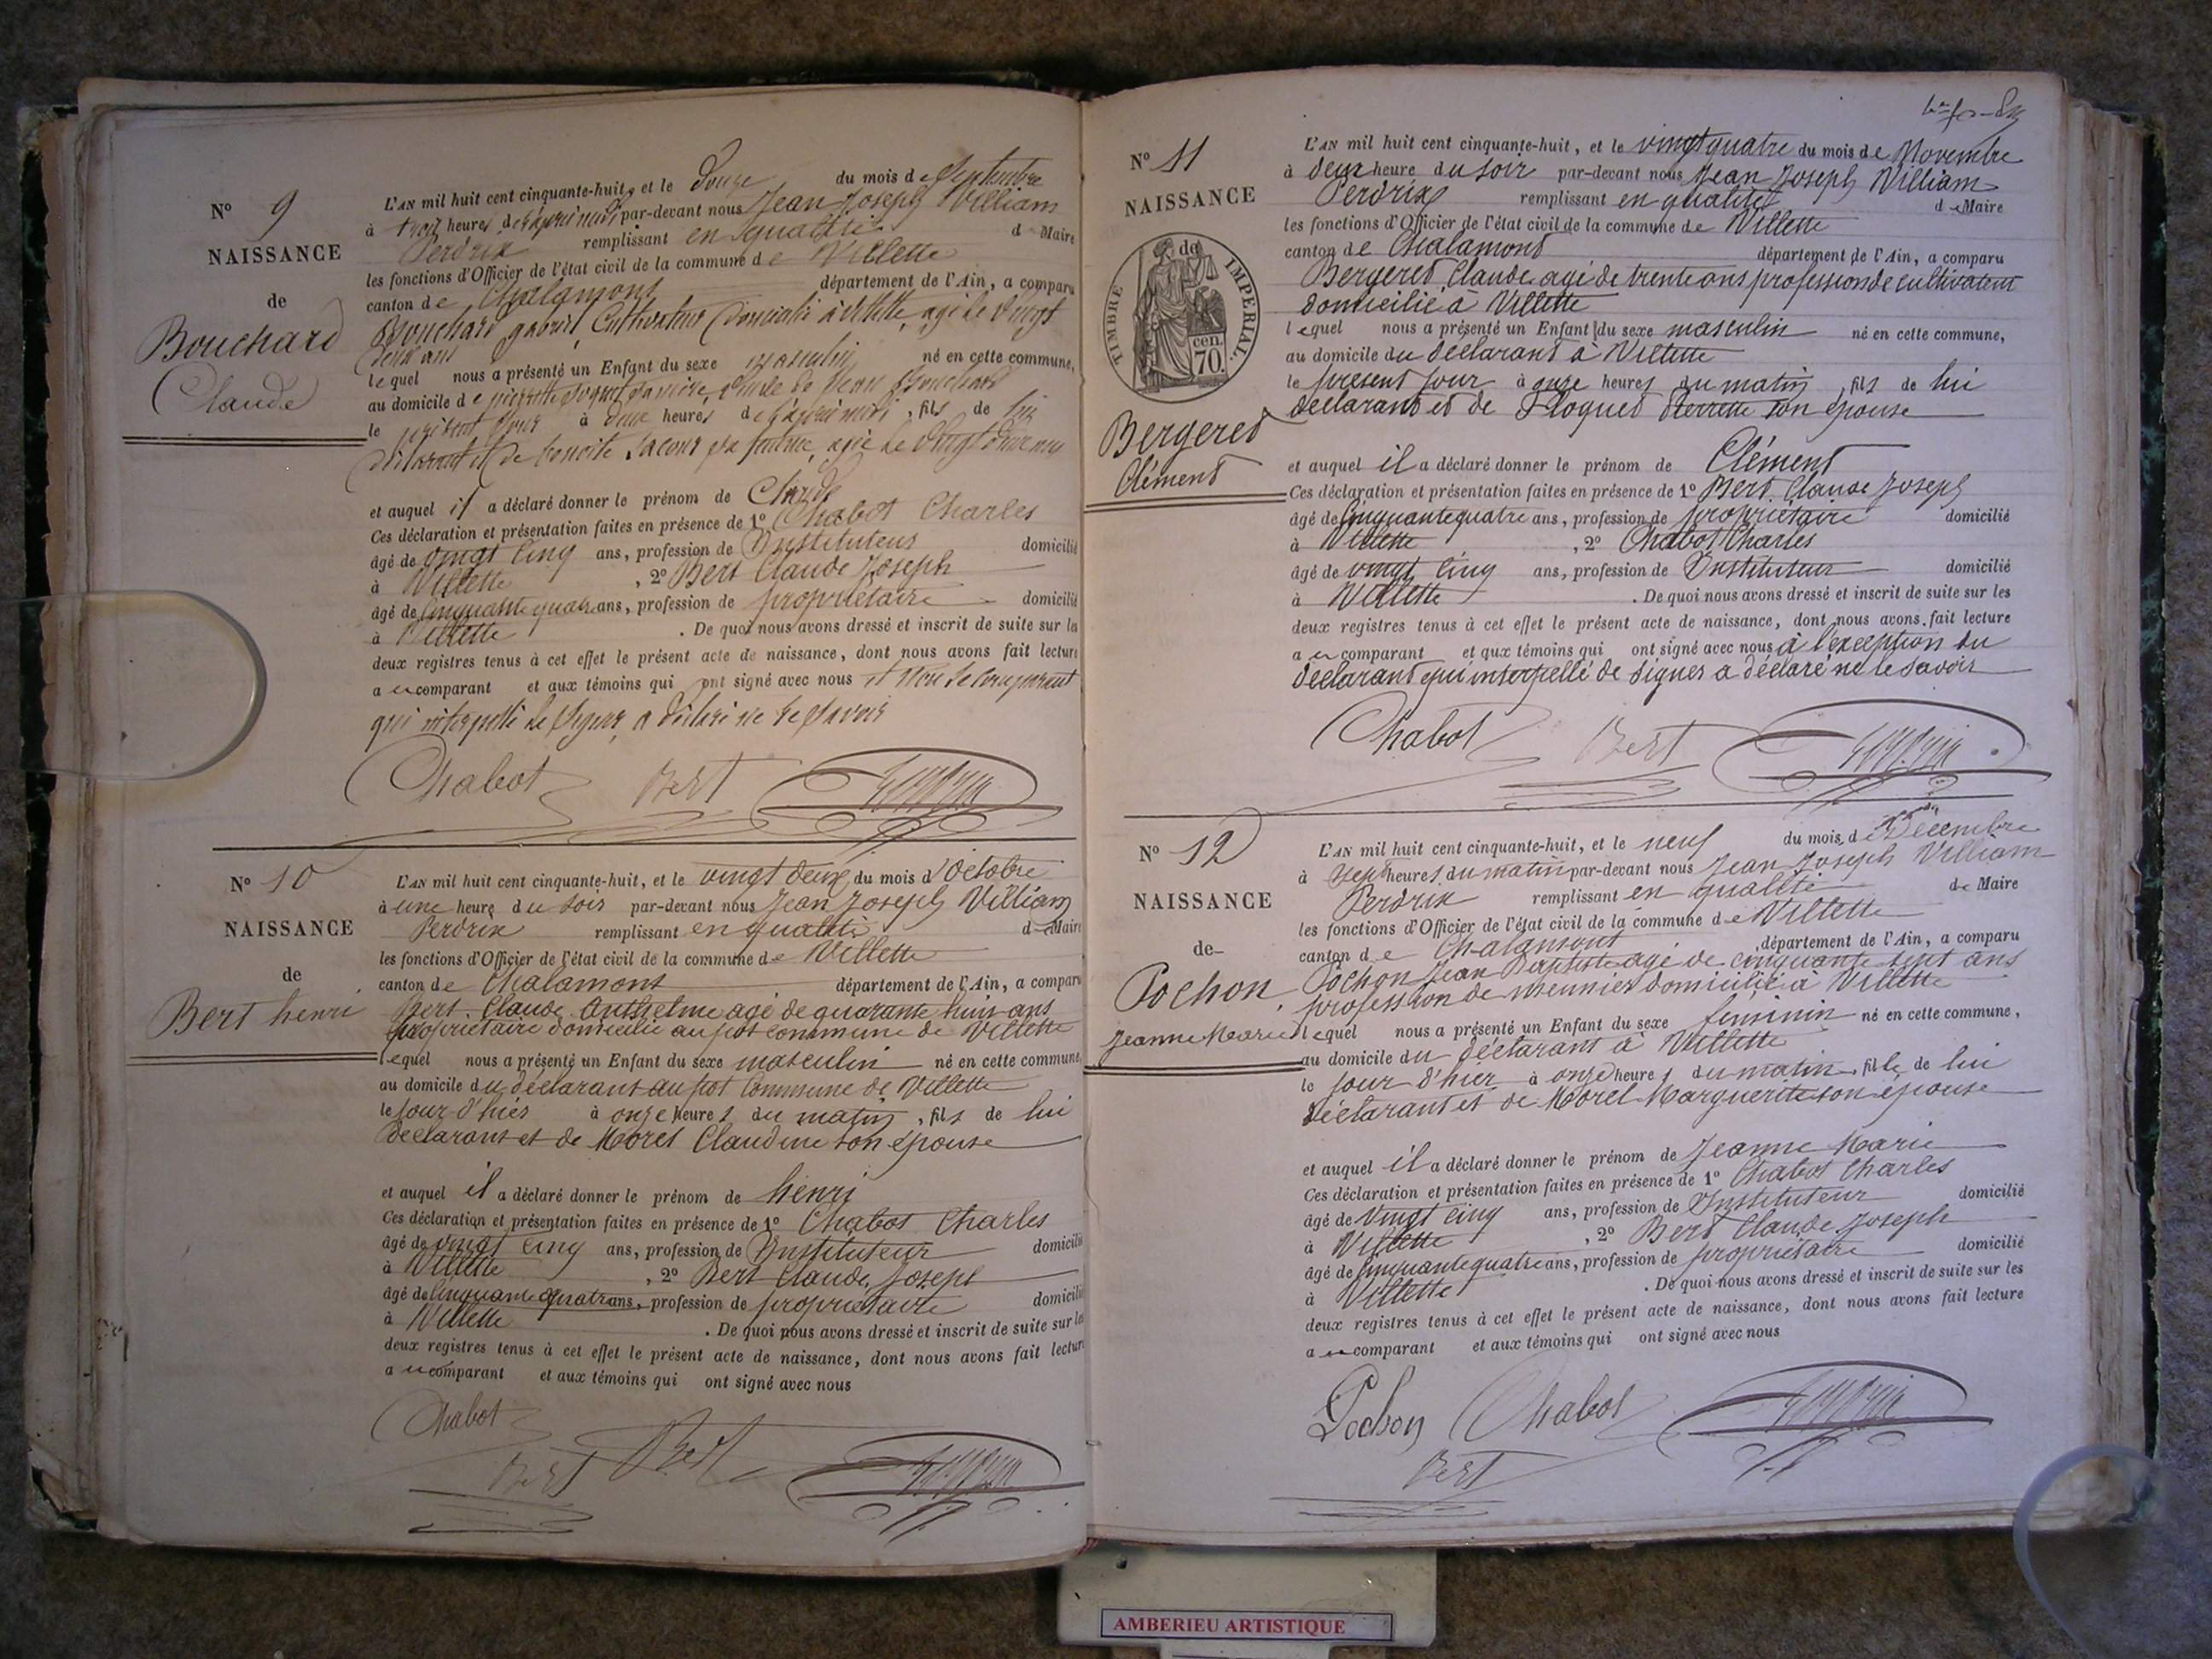 N° 9
NAISSANCE
de
Bouchard
Claude
L'AN mil huit cent cinquante-huit, et le Douze du mois de Septembre
à trois heures de l'après midi par-devant nous Jean Joseph William
Perdrix remplissant en qualité de Maire
les fonctions d'Officier de l'état civil de la commune de Villette
canton de Chalamont département de l'Ain, a comparu
Bouchard gabriel, Cultivateur Domicilié à Villette, agé de Vingt
deux ans
lequel nous a présenté un Enfant du sexe masculin né en cette commune,
au domicile de pierrette sa mère, de Bouchard
le présent Jour à deux heures de l'après midi, fils de lui
déclarant et de benoite sa femme, agée de Vingt deux ans
et auquel il a déclaré donner le prénom de Claude
Ces déclaration et présentation faites en présence de 1° Chabot Charles
âgé de vingt Cinq ans, profession de Instituteur domicilié
à Villette, 2° Bert Claude Joseph
âgé de Cinquante quatre ans, profession de propriétaire domicilié
à Villette. De quoi nous avons dressé et inscrit de suite sur les
deux registres tenus à cet effet le présent acte de naissance, dont nous avons fait lecture
au comparant et aux témoins qui ont signé avec nous et non le comparant
qui interpellé de signer, a déclaré ne le savoir
Chabot Bert Perdrix
N° 10
NAISSANCE
de
Bert henri
L'AN mil huit cent cinquante-huit, et le vingt deux du mois d'Octobre
à une heure du soir par-devant nous Jean Joseph William
Perdrix remplissant en qualité de Maire
les fonctions d'Officier de l'état civil de la commune de Villette
canton de Chalamont département de l'Ain, a comparu
Bert Claude Anthelme agé de quarante huit ans
propriétaire domicilié au commune de Villette
lequel nous a présenté un Enfant du sexe masculin né en cette commune,
au domicile du déclarant au Commune de Villette
le jour d'hier à onze heures du matin, fils de lui
déclarant et de Morel Claudine son épouse
et auquel il a déclaré donner le prénom de henri
Ces déclaration et présentation faites en présence de 1° Chabot Charles
âgé de vingt cinq ans, profession de Instituteur domicilié
à Villette, 2° Bert Claude Joseph
âgé de Cinquante quatre ans, profession de propriétaire domicilié
à Villette. De quoi nous avons dressé et inscrit de suite sur les
deux registres tenus à cet effet le présent acte de naissance, dont nous avons fait lecture
au comparant et aux témoins qui ont signé avec nous
Chabot
Bert Bert Perdrix
N° 11
NAISSANCE
de
TIMBRE IMPERIAL.
cen.
70.
Bergeret
Clément
L'AN mil huit cent cinquante-huit, et le vingt quatre du mois de Novembre
à deux heure du soir par-devant nous Jean Joseph William
Perdrix remplissant en qualité de Maire
les fonctions d'Officier de l'état civil de la commune de Villette
canton de Chalamont département de l'Ain, a comparu
Bergeret Claude agé de trente ans profession de cultivateur
domicilié à Villette
lequel nous a présenté un Enfant du sexe masculin né en cette commune,
au domicile du déclarant à Villette
le présent jour à onze heures du matin, fils de lui
déclarant et de Floquet Pierrette son épouse
et auquel il a déclaré donner le prénom de Clément
Ces déclaration et présentation faites en présence de 1° Bert Claude Joseph
âgé de Cinquante quatre ans, profession de propriétaire domicilié
à Villette, 2° Chabot Charles
âgé de vingt Cinq ans, profession de Instituteur domicilié
à Villette. De quoi nous avons dressé et inscrit de suite sur les
deux registres tenus à cet effet le présent acte de naissance, dont nous avons fait lecture
au comparant et aux témoins qui ont signé avec nous à l'exception du
déclarant qui interpellé de signer a déclaré ne le savoir
Chabot Bert Perdrix
N° 12
NAISSANCE
de
Pochon
Jeanne Marie
L'AN mil huit cent cinquante-huit, et le neuf du mois de Décembre
à Sept heures du matin par-devant nous Jean Joseph William
Perdrix remplissant en qualité de Maire
les fonctions d'Officier de l'état civil de la commune de Villette
canton de Chalamont département de l'Ain, a comparu
Pochon Jean Baptiste agé de cinquante sept ans
profession de meunier domicilié à Villette
lequel nous a présenté un Enfant du sexe féminin né en cette commune,
au domicile du déclarant à Villette
le jour d'hier à onze heures du matin, fille de lui
déclarant et de Morel Marguerite son épouse
et auquel il a déclaré donner le prénom de Jeanne Marie
Ces déclaration et présentation faites en présence de 1° Chabot Charles
âgé de Vingt Cinq ans, profession de Instituteur domicilié
à Villette, 2° Bert Claude Joseph
âgé de Cinquante quatre ans, profession de propriétaire domicilié
à Villette. De quoi nous avons dressé et inscrit de suite sur les
deux registres tenus à cet effet le présent acte de naissance, dont nous avons fait lecture
au comparant et aux témoins qui ont signé avec nous
Pochon Chabot Perdrix
Bert
AMBERIEU ARTISTIQUE